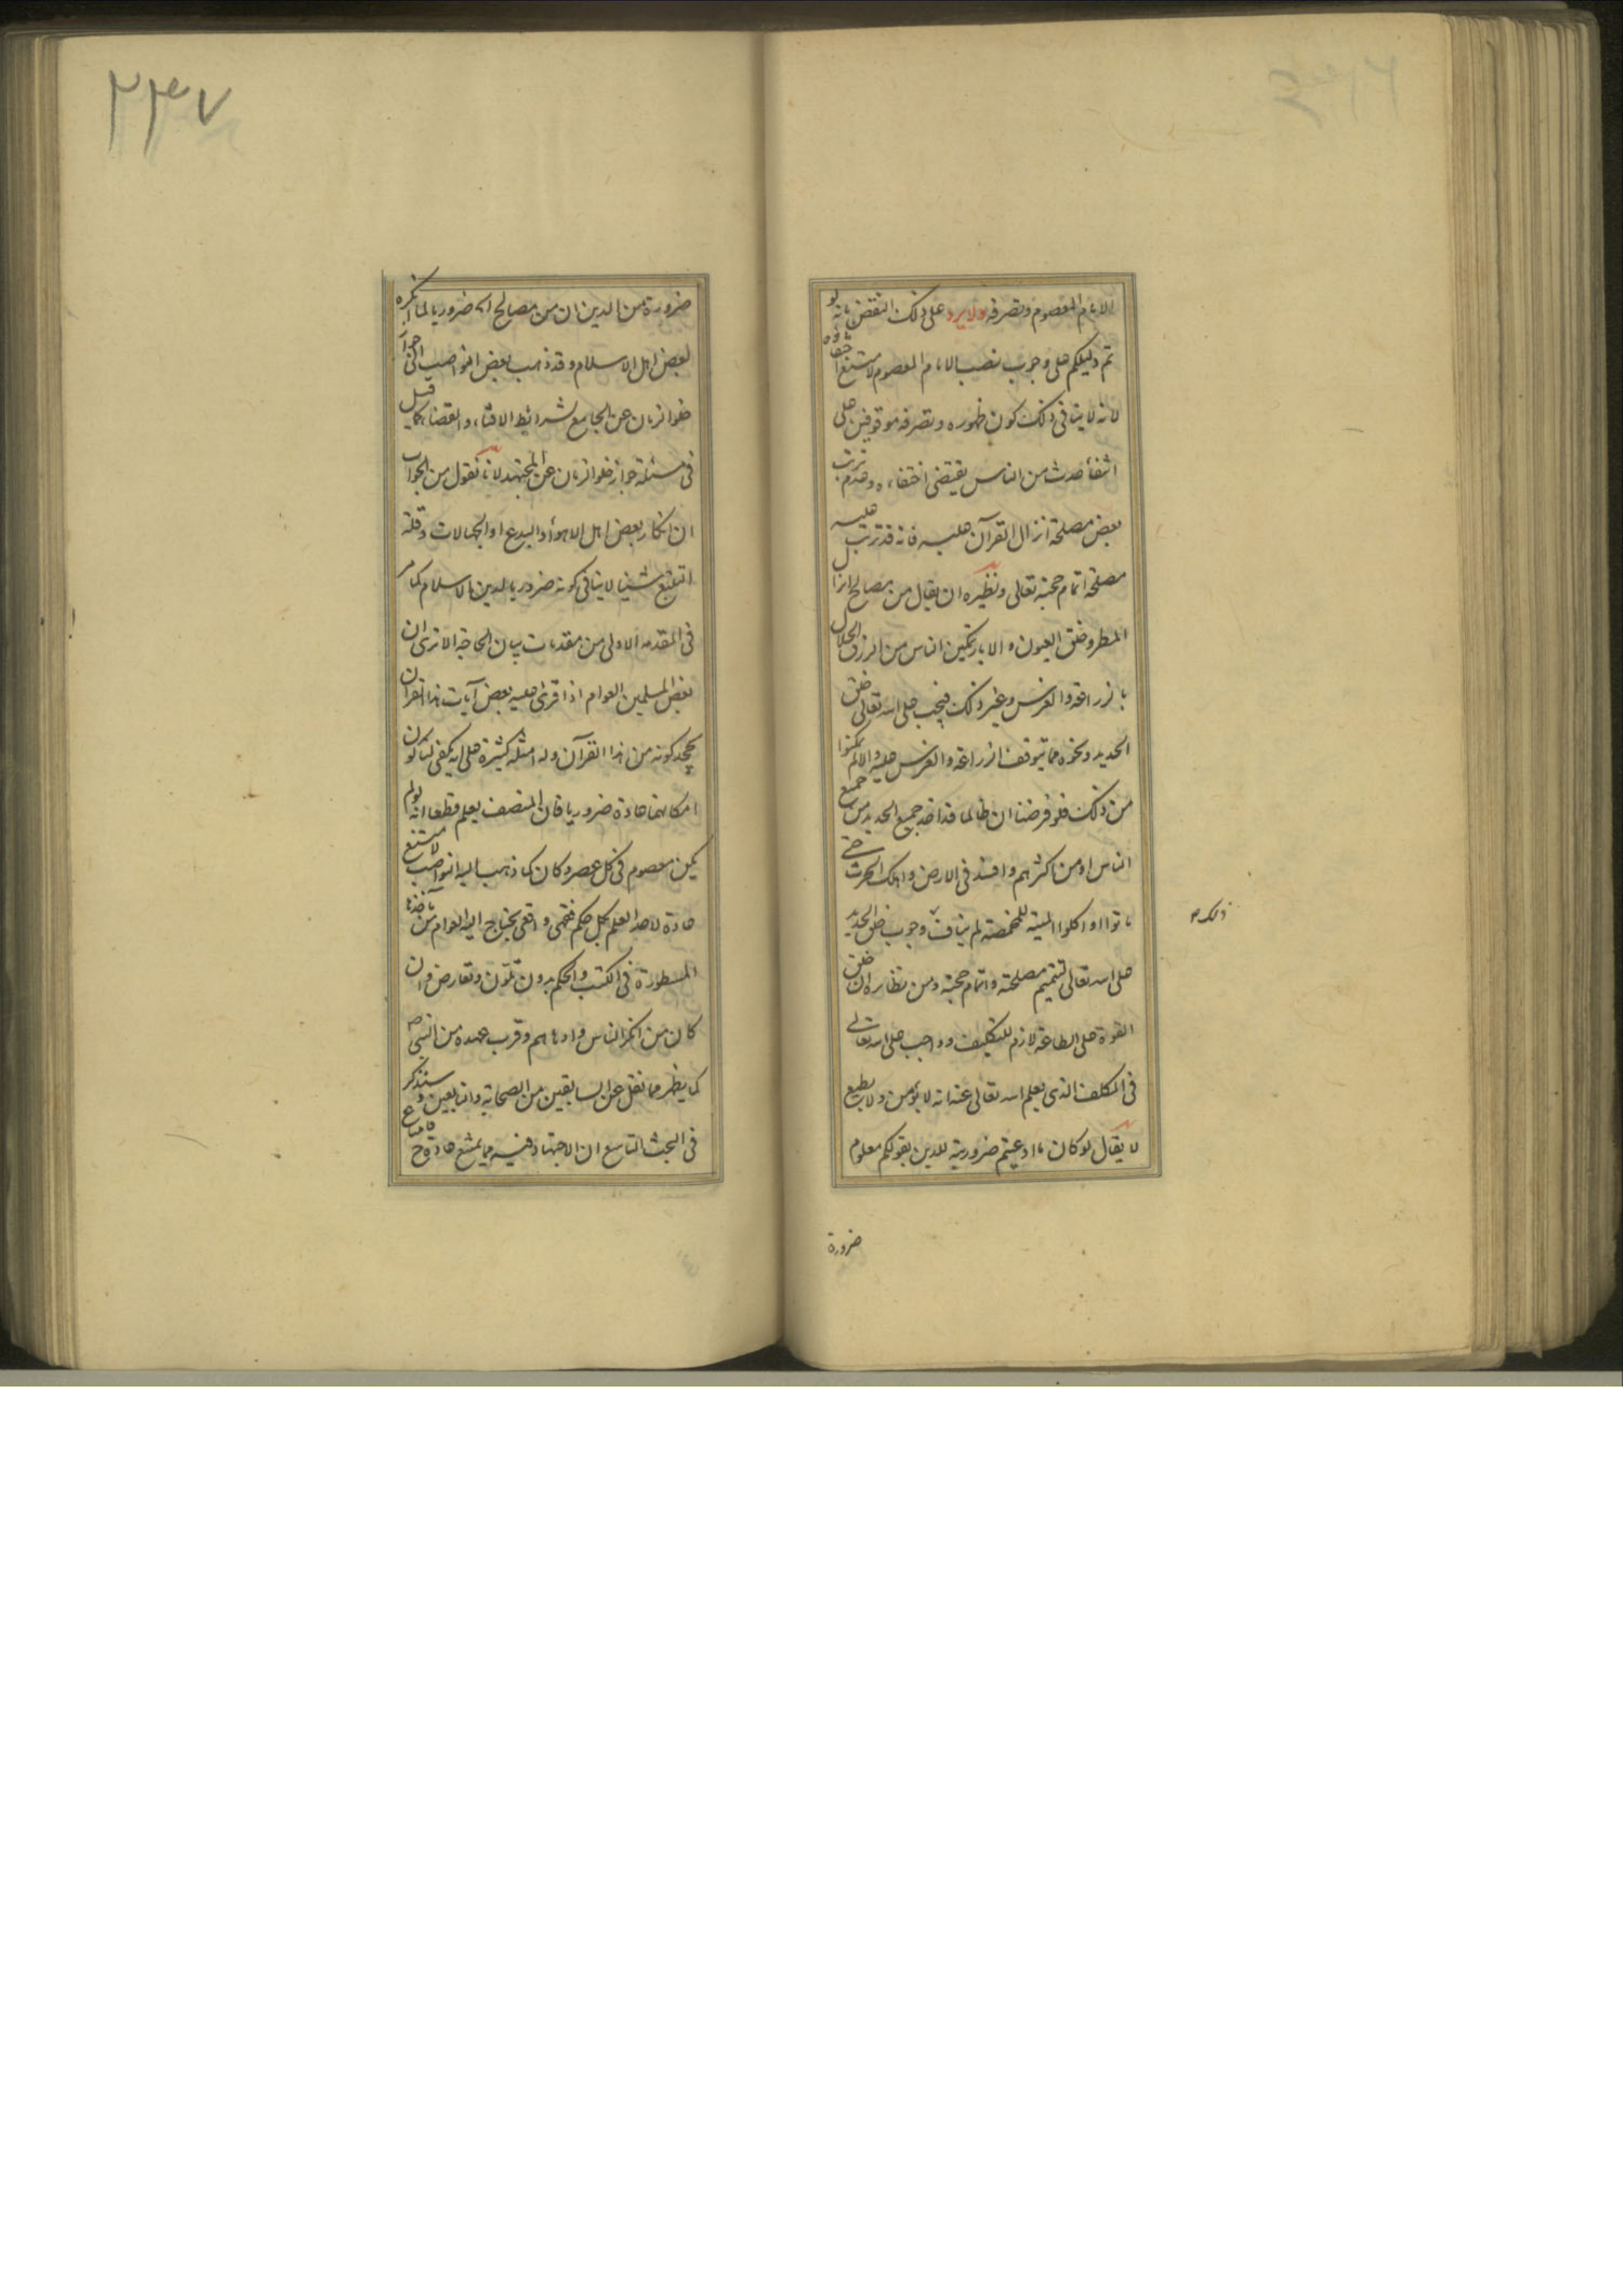 الامام المعصوم وتصرفه ولا يرد على ذلك النقض بانه لو
تم دليلكم على وجوب نصب الامام المعصوم لامتنع اختفاؤه
لانه لا ينافى ذلك كون ظهوره وتصرفه موقوفين على
انتفاء حدث من الناس يقتضى اختفاءه وعدم ترتب
بعض مصلحة انزال القرآن عليه فانه قد ترتب عليه
مصلحة اتمام حجته تعالى ونظيره ان يقال من مصالح انزال
المطر وخلق العيون والابار تمكين الناس من الرزق الحلال
بالزراعة والغرس وغير ذلك فيجب على الله تعالى خلق
الحديد ونحوه مما يتوقف الزراعة والغرس عليه والا لم يمكنوا
من ذلك فلو فرضنا ان ظالما قد اخذ جميع الحديد من جميع
الناس او من اكثرهم وافسد فى الارض واهلك الحرث حتى
ماتوا او اكلوا الميتة للمخمصة لم يناف وجوب خلق الحديد
ذلك
على الله تعالى لتتميم مصلحته واتمام حجته ومن نظايره ان خلق
القوة على الطاعة لازم للتكليف وواجب على الله تعالى
فى المكلف الذى يعلم الله تعالى عنه انه لا يؤمن ولا يطيع
لا يقال لو كان ما ادعيتم ضرورية للدين بقولكم معلوم
ضرورة
٢٣٧
ضرورة من الدين ان من مصالح الخ ضروريا لما انكره
بعض اهل الاسلام وقد ذهب بعض النواصب الى جواز
خلو الزمان عن الجامع لشرائط الافتاء والقضاء كما قيل
فى مسئلة جواز خلو الزمان عن المجتهد لانا نقول من الجواب
ان انكار بعض اهل الاهواء والبدع او الجهالات وقلة
التتبع شيئا لا ينافى كونه ضروريا لدين الاسلام كما مر
فى المقدمه الاولى من مقدمات بيان الحاجة الا ترى ان
بعض المسلمين العوام اذا قرئ عليه بعض آيات هذا القرآن
يجحد كونه من هذا القرآن وله امثلة كثيرة على انه يكفى لنا كون
امكانهما عادة ضروريا فان المنصف يعلم قطعا انه لو لم
يكن معصوم فى كل عصر وكان كما ذهب اليه النواصب لامتنع
عادة لاحد العلم بكل حكم فقهى واقعى يحتاج اليه العوام من مآخذها
المسطورة فى الكتب والحكم بدون تلون وتعارض وان
كان من افكر الناس وادهاهم وقرب عهده من النبى ص
كما يظهر مما نقل عن السابقين من الصحابة والتابعين وسنذكر
فى البحث التاسع ان الاجتهاد فيه مما يمتنع عادة